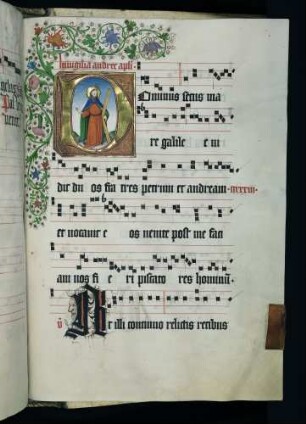 In vigilia andree apli
Ominus secus ma
re galile e ui
dit du os fra tres petrum et andream
et uocauit e os uenite post me faci
am uos fi e ri piscato res hominū
At illi continuo relictis retibus